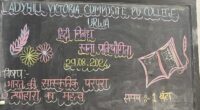 LADYHILL VICTORIA COMPOSITE PU COLLEGE
URWA
हिंदी विभाग
रचना प्रतियोगिता
29.08.2024
विषय -
भारत की सांस्कृतिक परंपरा
त्योहारों का महत्व
समय : 1 घंटा